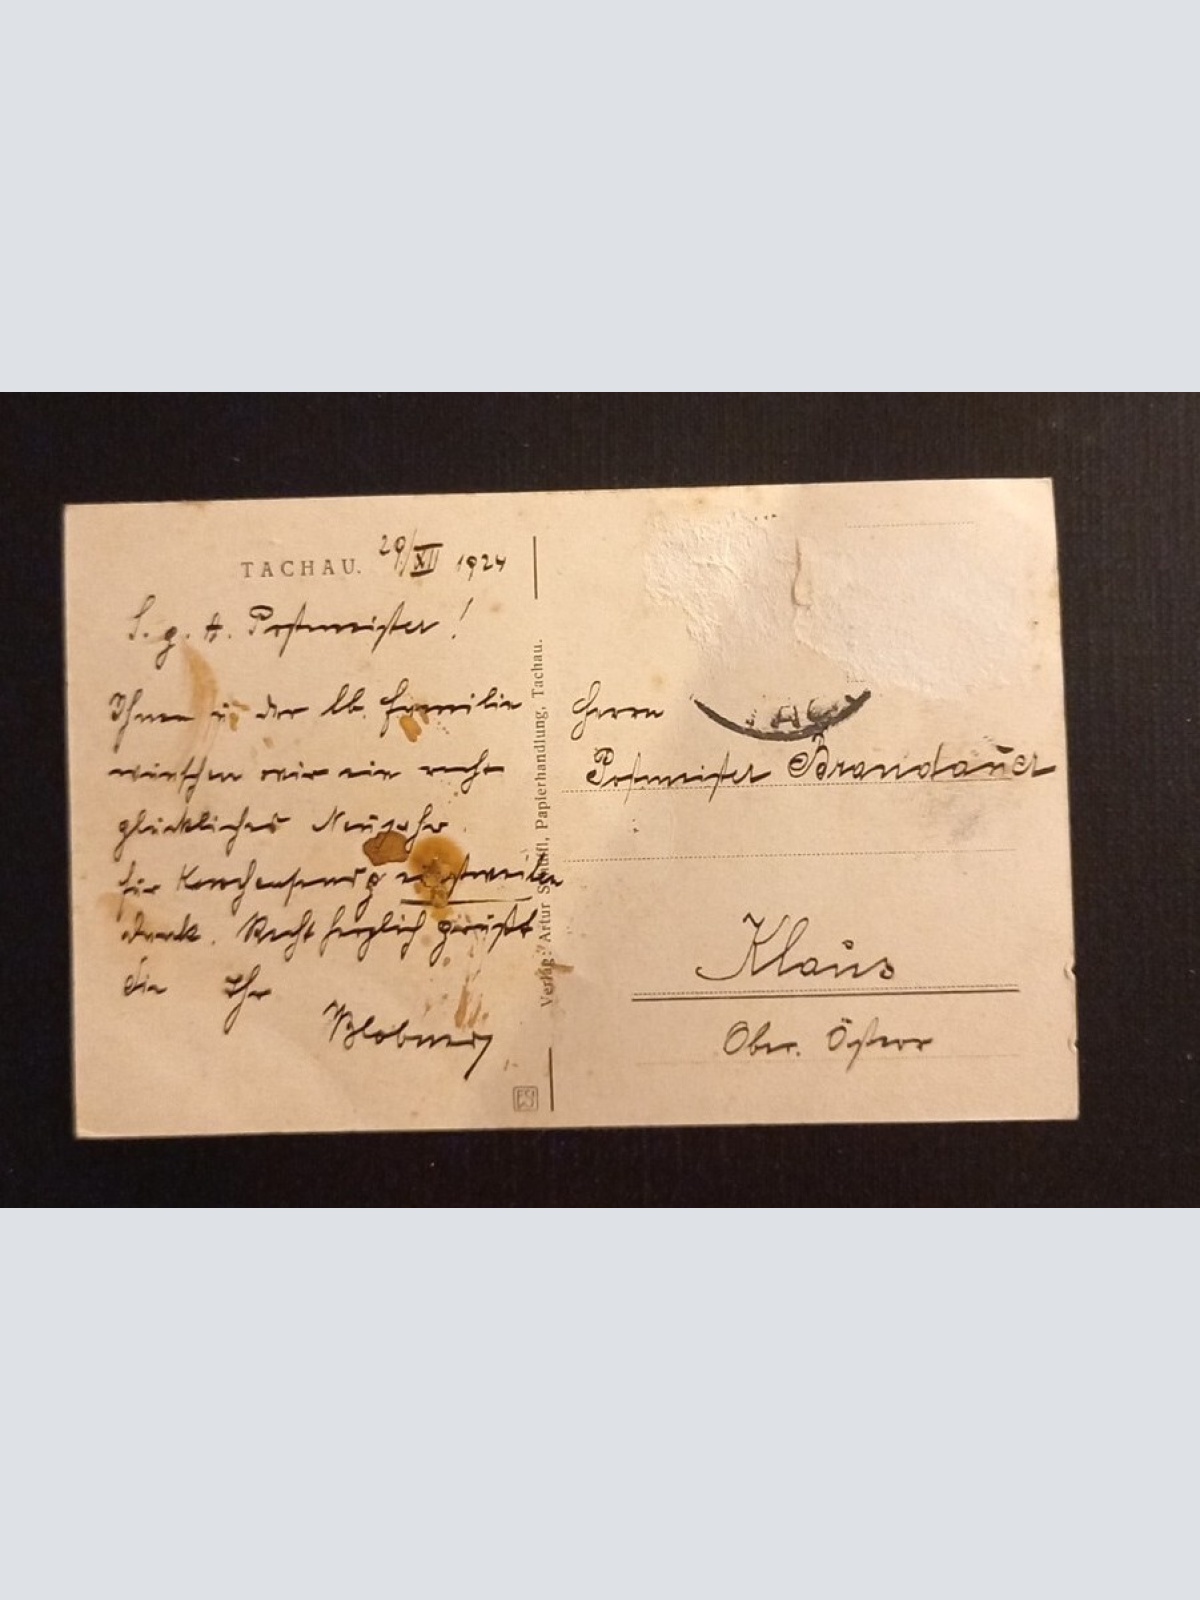 TACHAU. 29/XII 1924
S. g. H. Postmeister!
Ihnen u. der lb. Familie
wünschen wir ein recht
glückliches Neujahr.
für einstweilen
dank. Recht herzlich grüßt
Sie Ihr
Verlag: Artur Papierhandlung, Tachau.
Herrn
Postmeister Brandauer
Klaus
Ober. Österr